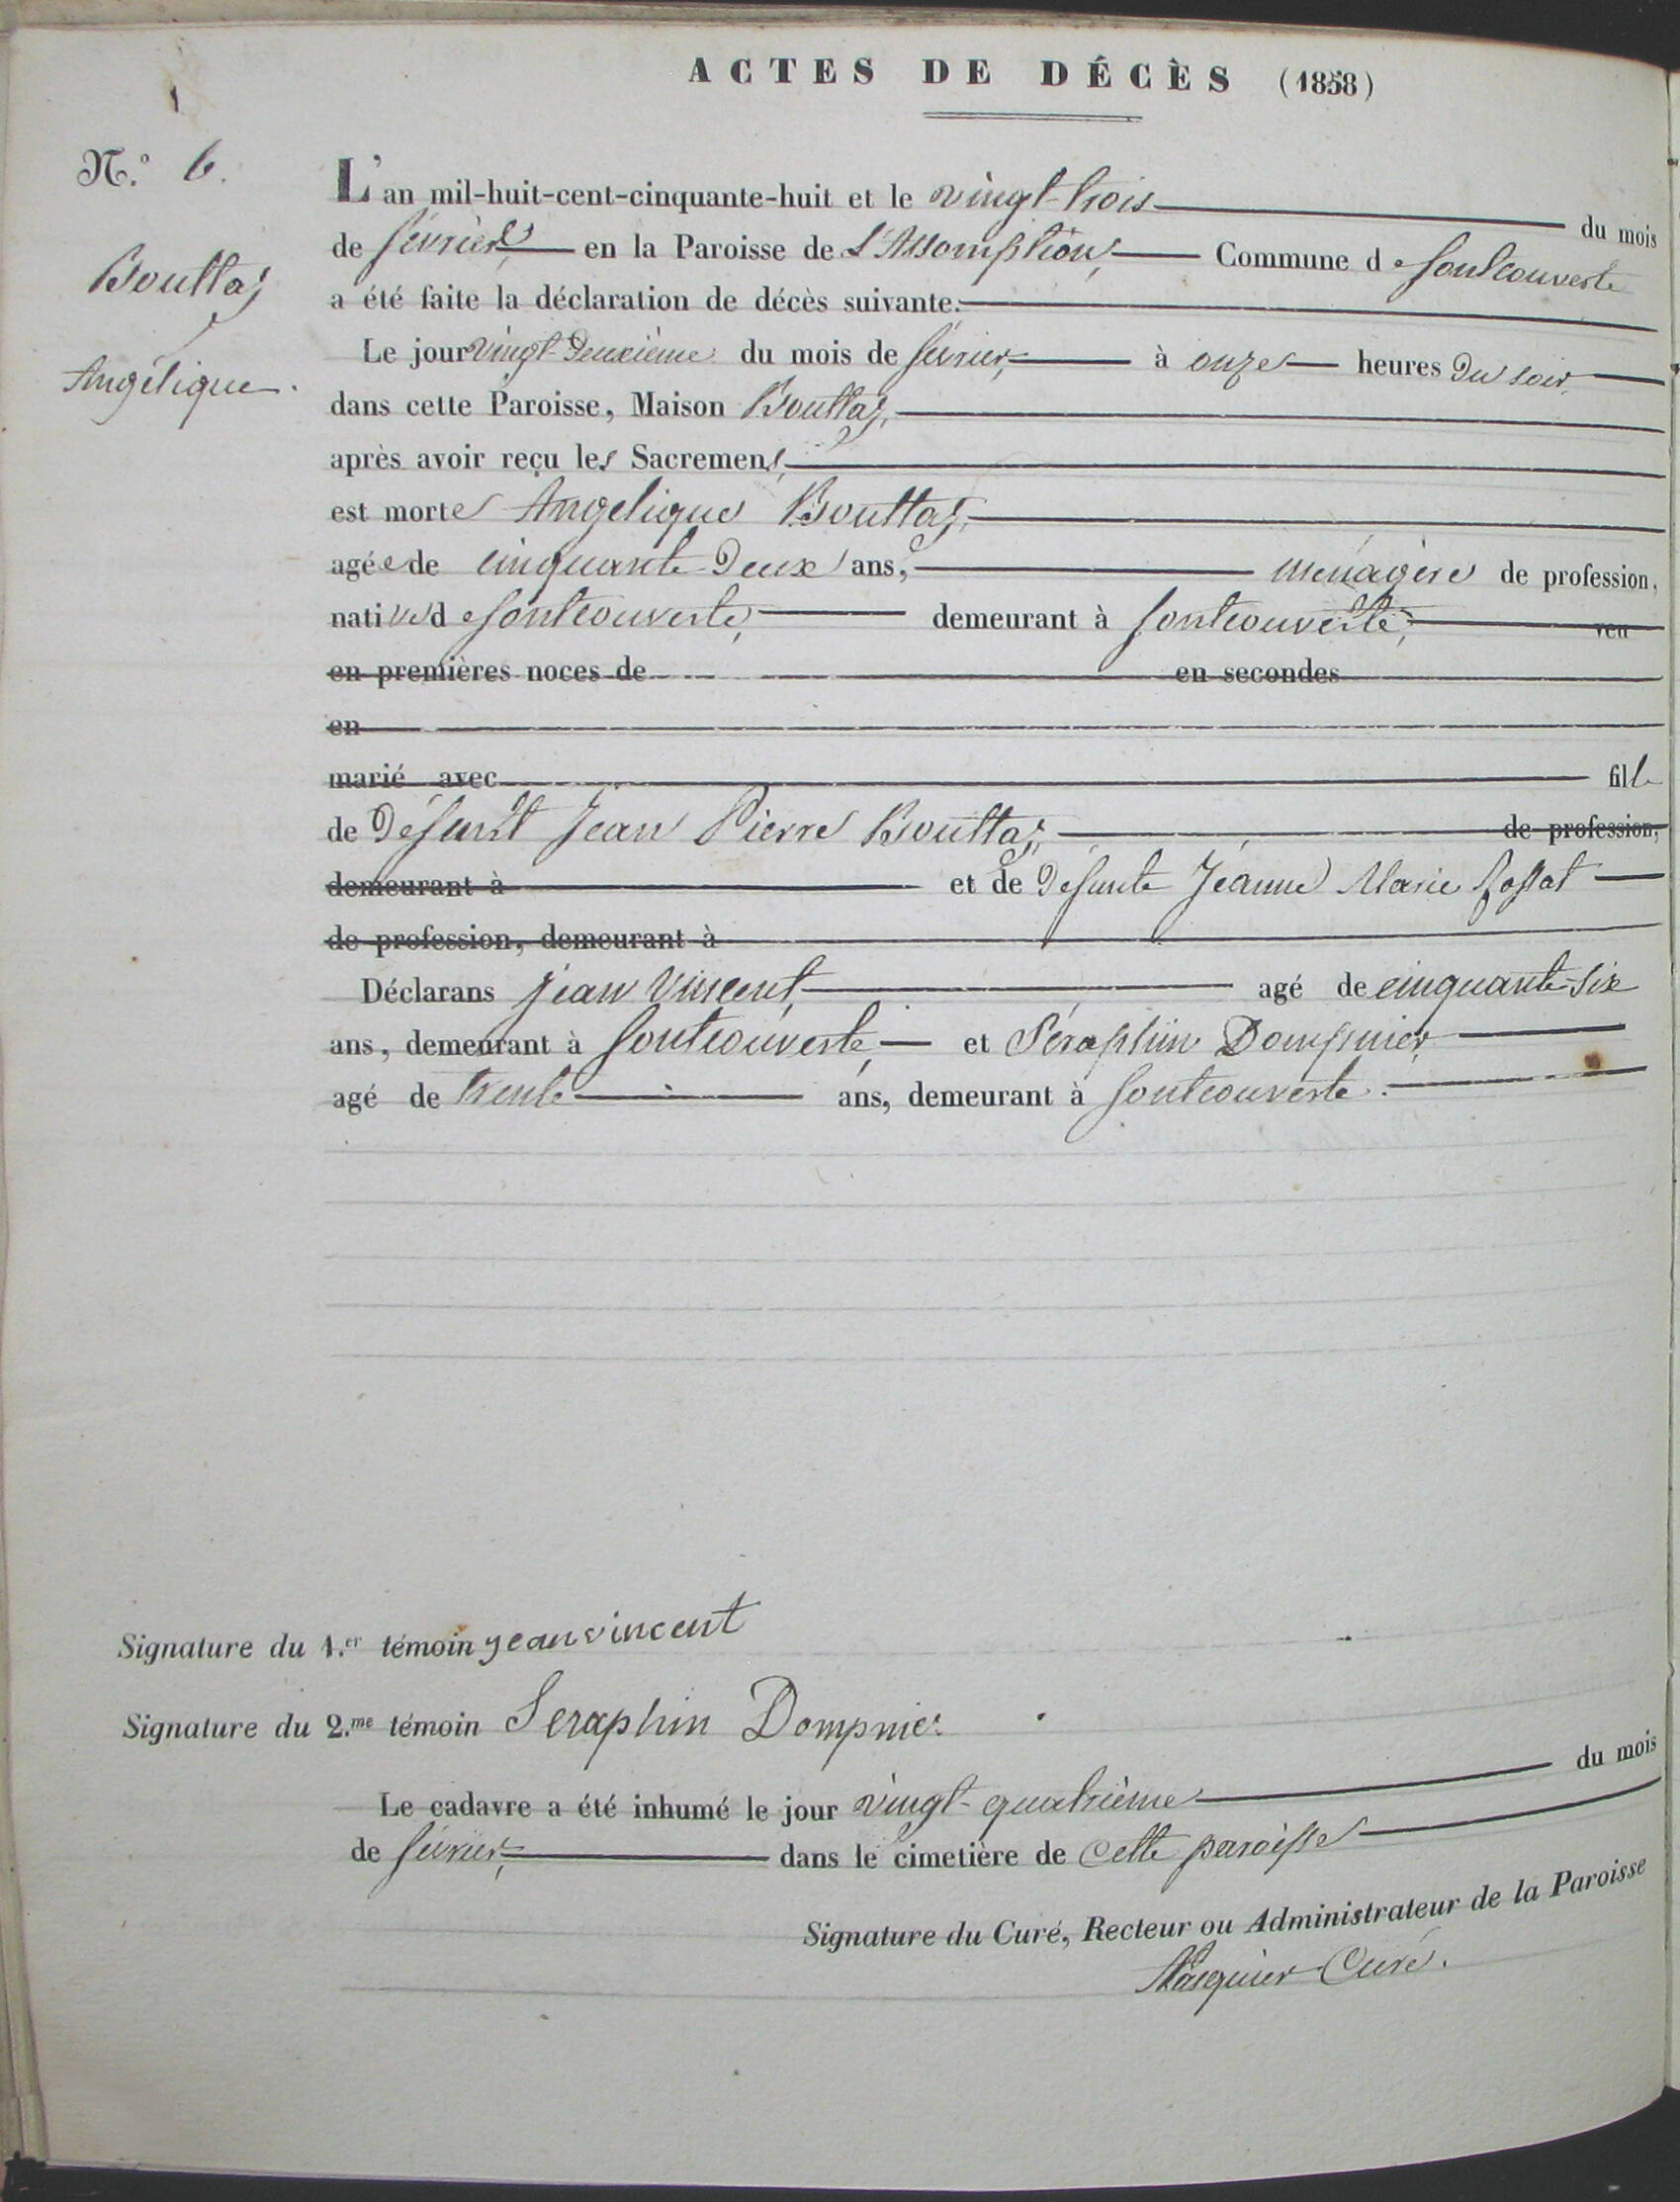 ACTES DE DÉCÈS (1858)
N.° 6.
Bouttaz
Angélique.
L'an mil-huit-cent-cinquante-huit et le vingt-trois du mois
de février, en la Paroisse de L'Assomption, Commune de fontcouverte
a été faite la déclaration de décès suivante.
Le jour vingt-deuxième du mois de février, à onze heures du soir
dans cette Paroisse, Maison Bouttaz,
après avoir reçu les Sacremens,
est morte Angelique Bouttaz,
agée de cinquante deux ans, ménagère de profession,
native de fontcouverte, demeurant à fontcouverte, veu
en premières noces de en secondes
en
marié avec fille
de défunt Jean Pierre Bouttaz, de profession,
demeurant à et de défunte Jeanne Marie
de profession, demeurant à
Déclarans Jean Vincent, agé de cinquante-six
ans, demeurant à fontcouverte, et Séraphin Dompnier,
agé de trente ans, demeurant à fontcouverte.
Signature du 1.er témoin jean vincent
Signature du 2.me témoin Seraphin Dompnier
Le cadavre a été inhumé le jour vingt-quatrième du mois
de février, dans le cimetière de cette paroisse
Signature du Curé, Recteur ou Administrateur de la Paroisse
Curé.